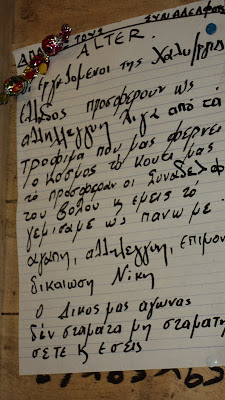 ΑΠΟ ΤΟΥΣ ΣΥΝΑΔΕΛΦΟΥΣ
ALTER.
Οι εργαζομενοι της Χαλυβουργιας
Ελλαδος προσφερουν ως
αλληλεγγυη λιγα από τα
τροφιμα που μας φερνει
ο κοσμος το κουτι μας
τό προσφεραν οι Συναδελφοι
του Βολου κ εμεις τό
γεμισαμε ως πανω με
αγαπη, αλληλεγγυη, επιμον
δικαιωση Νικη
Ο Δικος μας αγωνας
δέν σταματα μη σταματη
σετε κ εσεις